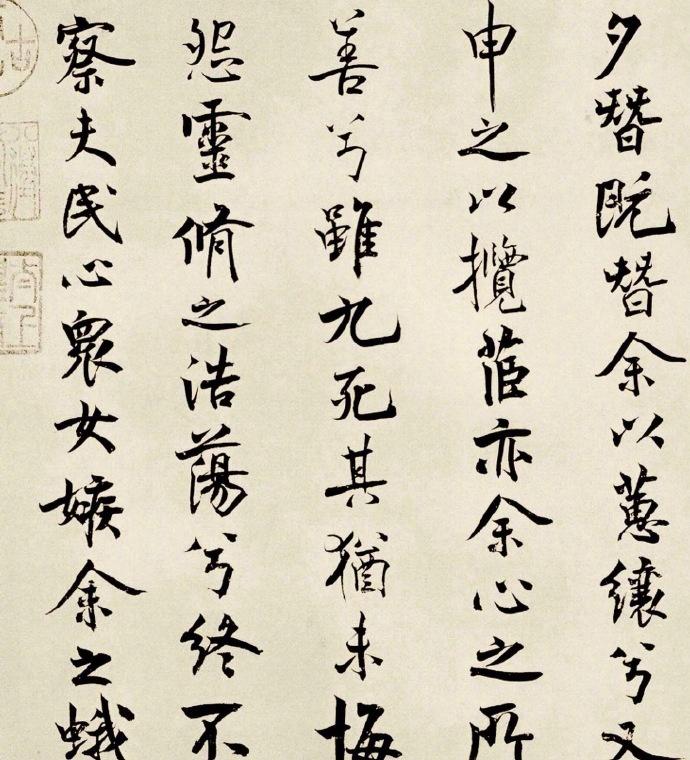 夕暜既暜余以蕙纕兮又
申之以攬茝亦余心之所
善兮雖九死其猶未悔
怨靈脩之浩蕩兮終不
察夫民心眾女嫉余之蛾